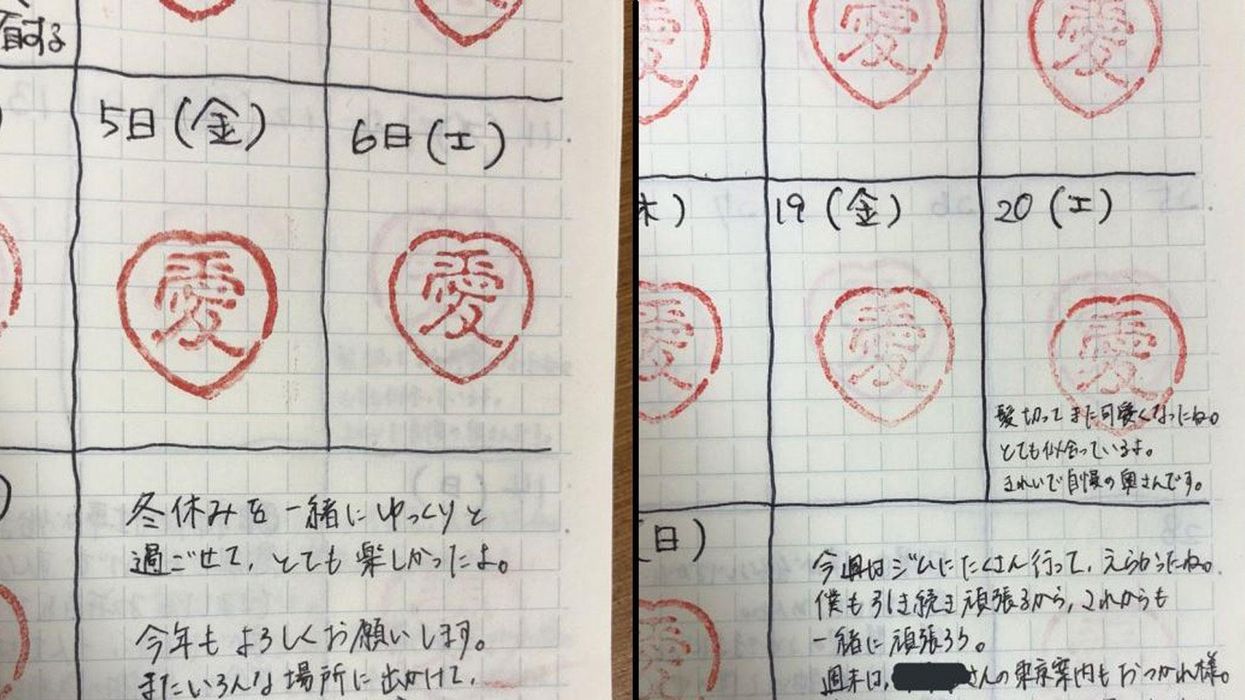 する
5日(金)
6日(土)
愛
愛
冬休みを一緒にゆっくりと
過ごせて、とても楽しかったよ。
今年もよろしくお願いします。
またいろんな場所に出かけて、
愛
愛
愛
木)
19(金)
20(土)
愛
愛
愛
髪切ってまた可愛くなったね。
とても似合っているよ。
きれいで自慢の奥さんです。
(日)
今週はジムにたくさん行って、えらかったね。
僕も引き続き頑張るから、これからも
一緒に頑張ろう。
週末は、さんの東京案内もおつかれ様。